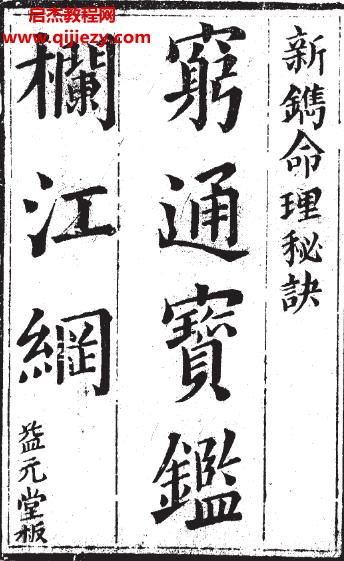 启杰教程网
www.qijiezy.com
新鐫命理秘訣
窮通寶鑑
欄江網
益元堂板